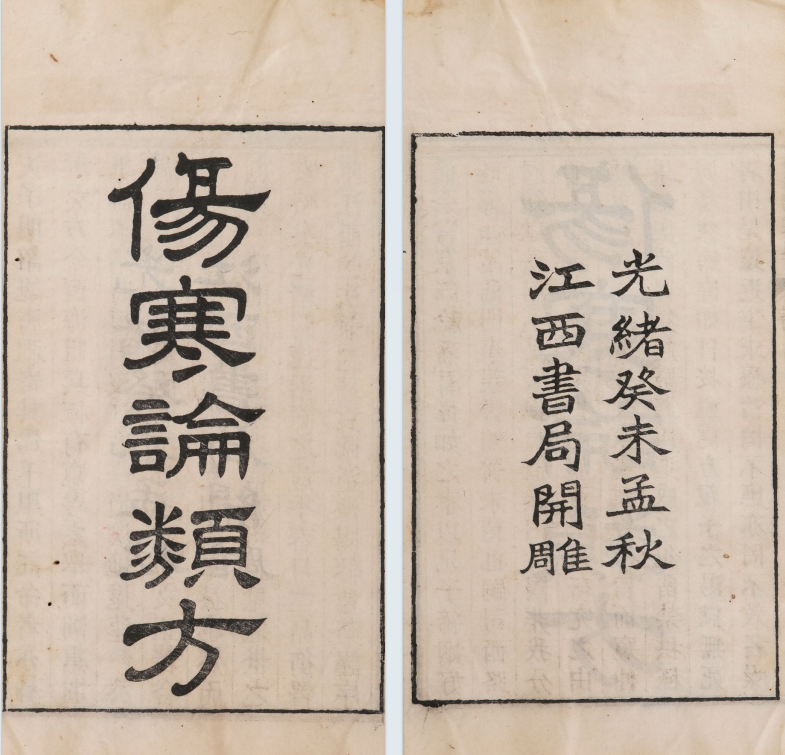 傷寒論類方
光緒癸未孟秋
江西書局開雕